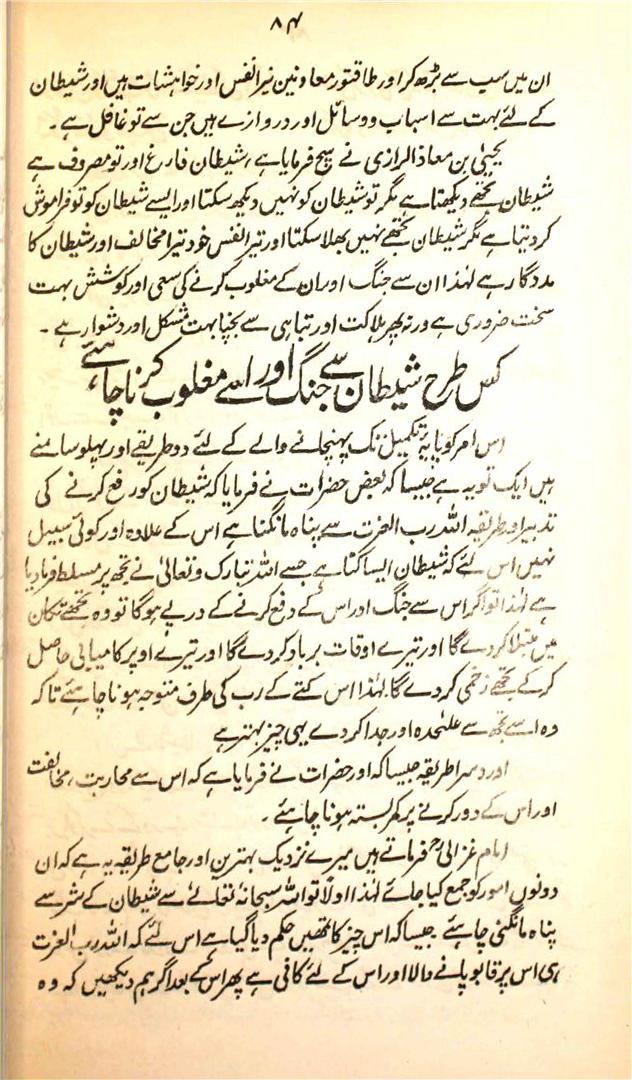 ۸۴
ان میں سب سے بڑھ کر اور طاقتور معاونین تیرا نفس اور خواہشات ہیں اور شیطان
کے لئے بہت سے اسباب و وسائل اور دروازے ہیں جن سے تو غافل ہے۔
یحییٰ بن معاذ الرازی نے سچ فرمایا ہے، شیطان فارغ اور تو مصروف ہے
شیطان تجھے دیکھتا ہے مگر تو شیطان کو نہیں دیکھ سکتا اور ایسے شیطان کو تو فراموش
کر دیتا ہے مگر شیطان تجھے نہیں بھلا سکتا اور تیرا نفس خود تیرا مخالف اور شیطان کا
مددگار ہے لہٰذا ان سے جنگ اور ان کے مغلوب کرنے کی سعی اور کوشش بہت
سخت ضروری ہے ورنہ پھر ہلاکت اور تباہی سے بچنا بہت مشکل اور دشوار ہے۔
کس طرح شیطان سے جنگ اور اسے مغلوب کرنا چاہئے،
اس امر کو پایۂ تکمیل تک پہنچانے والے کے لئے دو طریقے اور پہلو سامنے
ہیں ایک تو یہ ہے جیسا کہ بعض حضرات نے فرمایا کہ شیطان کو رفع کرنے کی
تدبیر اور طریقہ اللہ رب العزت سے پناہ مانگنا ہے اس کے علاوہ اور کوئی سبیل
نہیں اس لئے کہ شیطان ایسا کتا ہے جسے اللہ تبارک و تعالیٰ نے تجھ پر مسلط فرما دیا
ہے لہٰذا تو اگر اس سے جنگ اور اس کے دفع کرنے کے درپے ہوگا تو وہ تجھے تکان
میں مبتلا کر دے گا اور تیرے اوقات برباد کر دے گا اور تیرے اوپر کامیابی حاصل
کر کے تجھے زخمی کر دے گا۔ لہٰذا اس کتے کے رب کی طرف متوجہ ہونا چاہئے تاکہ
وہ اسے تجھ سے علیٰحدہ اور جدا کر دے یہی چیز بہتر ہے
اور دوسرا طریقہ جیسا کہ اور حضرات نے فرمایا ہے کہ اس سے محاربت، مخالفت
اور اس کے دور کرنے پر کمر بستہ ہونا چاہئے۔
امام غزالیؒ فرماتے ہیں میرے نزدیک بہترین اور جامع طریقہ یہ ہے کہ ان
دونوں امور کو جمع کیا جائے لہٰذا اولاً تو اللہ سبحانہٗ تعالیٰ سے شیطان کے شر سے
پناہ مانگنی چاہئے جیسا کہ اس چیز کا تمہیں حکم دیا گیا ہے اس لئے کہ اللہ رب العزت
ہی اس پر قابو پانے والا اور اس کے لئے کافی ہے پھر اس کے بعد اگر ہم دیکھیں کہ وہ